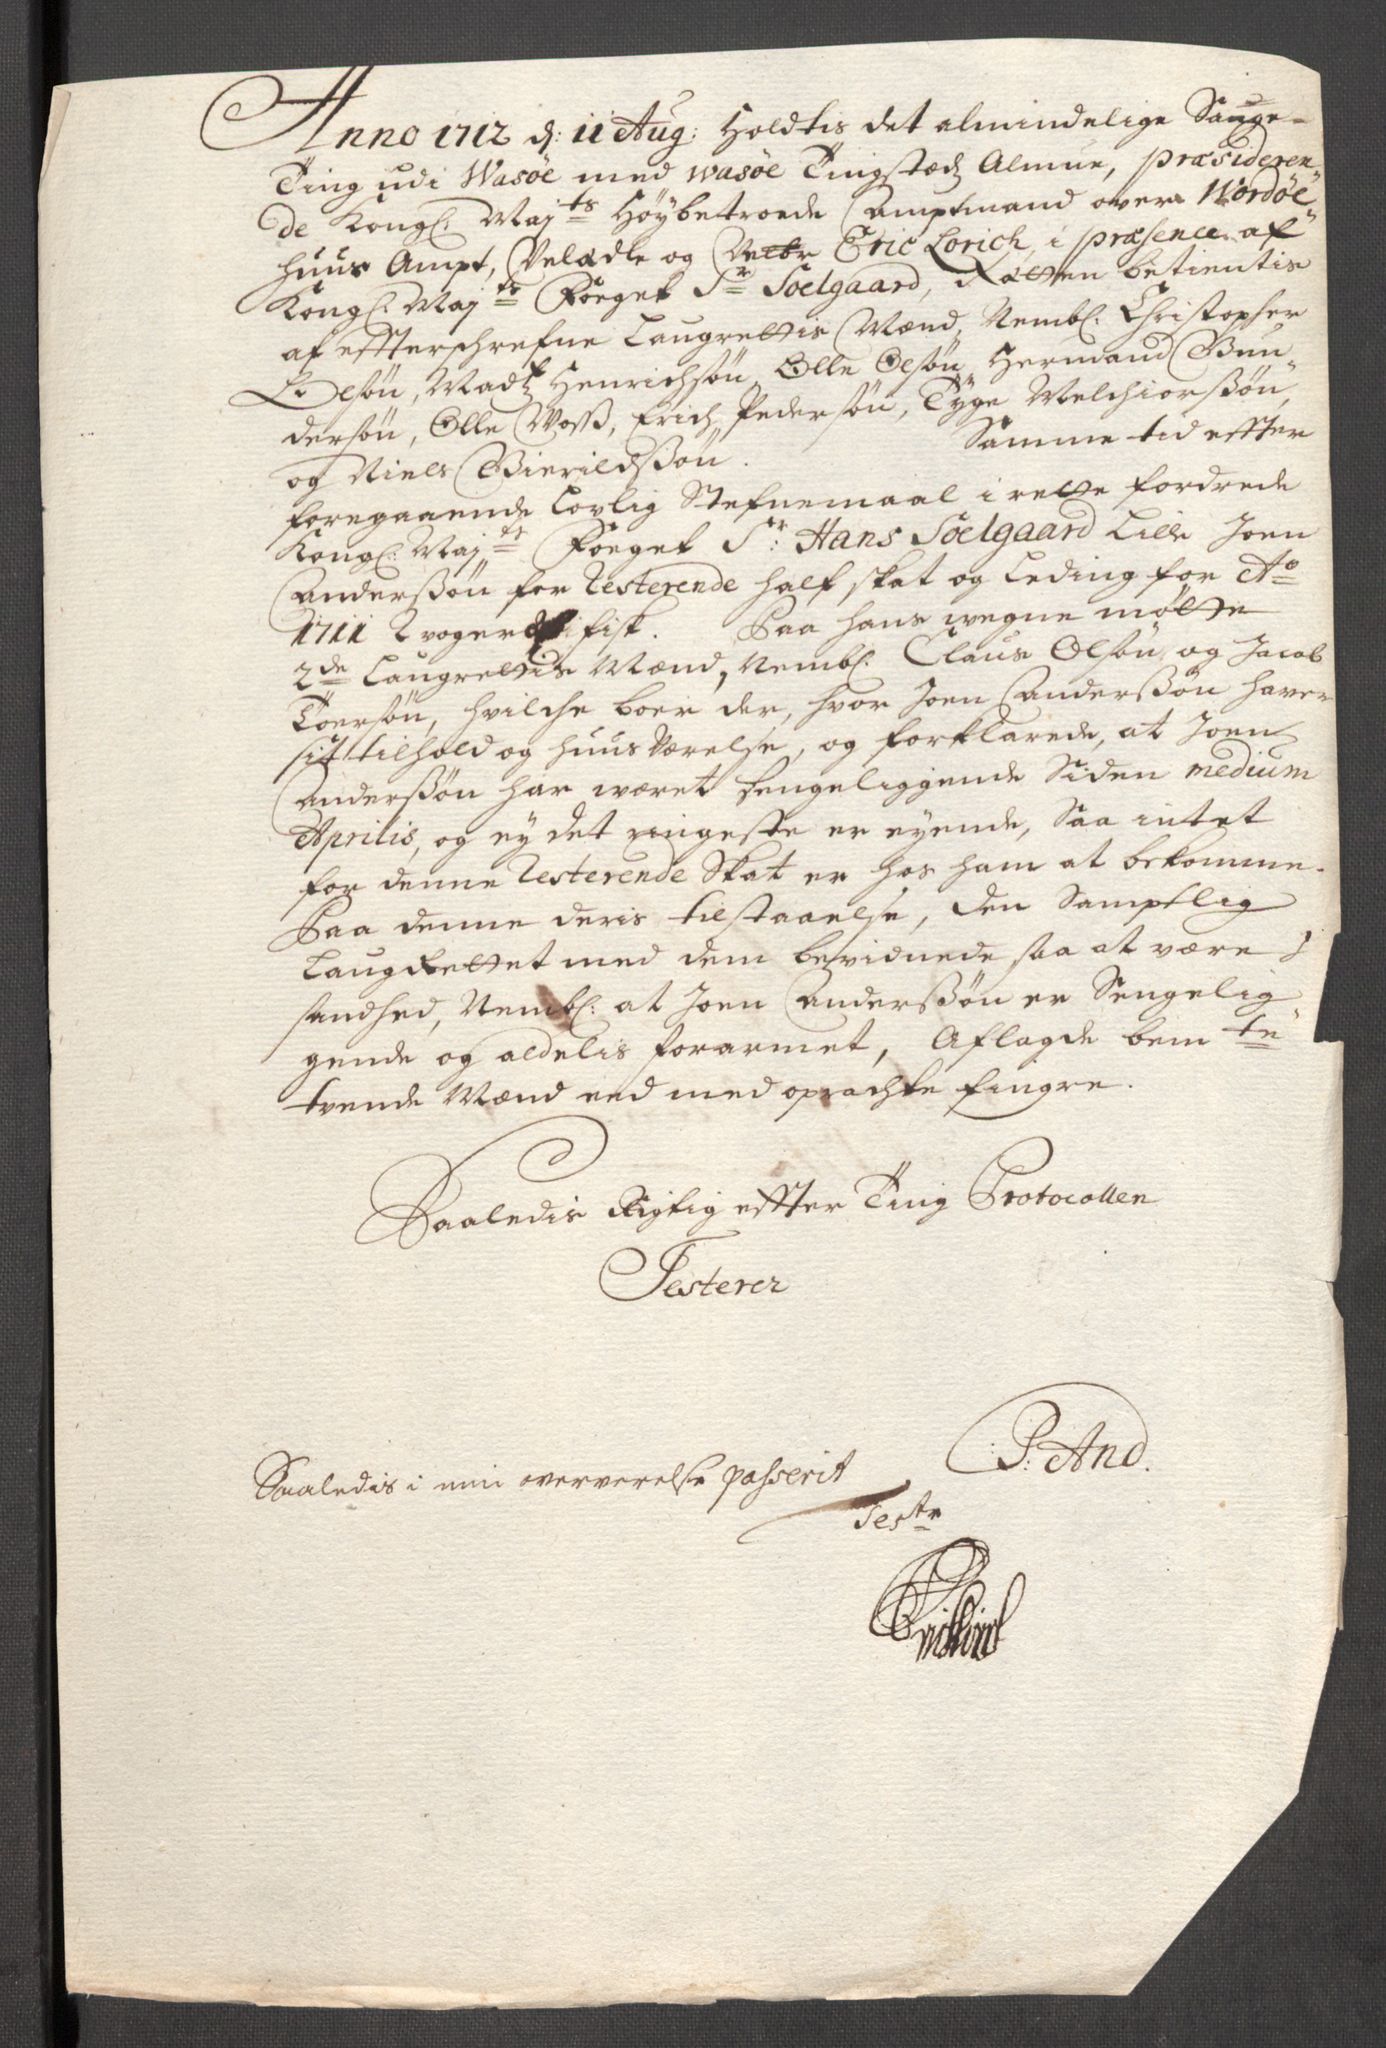 Anno 1712 d: 11 Aug: Holdtis det almindelige Sauge-
Ting udi Wasöe med Wasöe Tingstædz Almue, præsideren-
de Kongl: Maj ts Höybetroede Amptmand over Wordöe-
huus Ampt, Velædle og Velbr Eric Lorich, i præsence af
Kongl: Maj ts Foeget Sr Soelgaard, Rætten betientis
af effterschrefne Laugrettis Mænd, Nembl: Christopher
Olsön, Madtz Henrichsön, Olle Olsön, Hermand Gun-
dersön, Olle Voss, Erich Pedersön, Tyge Melchiorssön,
og Niels Bierildssön. Samme tid effter
foregaaende Lovlig Stefnemaal i rette fordrede
Kongl: Maj ts Foeget Sr: Hans Soelgaard Lille Joen
Anderssön for Resterende half skat og Leding for Ao
1711 2 voger fisk. Paa hans wegne mötte
2de Laugrettis Mænd, Nembl: Claus Olsön og Jacob
Toersön, hvilche boer der, hvor Joen Anderssön haver
sit tilhold og huus Værelse, og forklarede, at Joen
Anderssön har wæret sengeliggende Siden medium
Aprilis, og ey det ringeste er eyende, Saa intet
for denne Resterende Skat er hos ham at bekomme.
Paa denne deris tilstaaelse, den Samptlig
Laugrettet med dem bevidnede saa at være i
sandhed, Nembl: at Joen Anderssön er Sengelig
gende og aldelis forarmet, Aflagde bem te
tvende Mænd eed med oprachte fingre.
Saaledis Rigtig effter Ting Protocollen
Testerer
P: And.
Saaledis i min oververelse passerit
Test